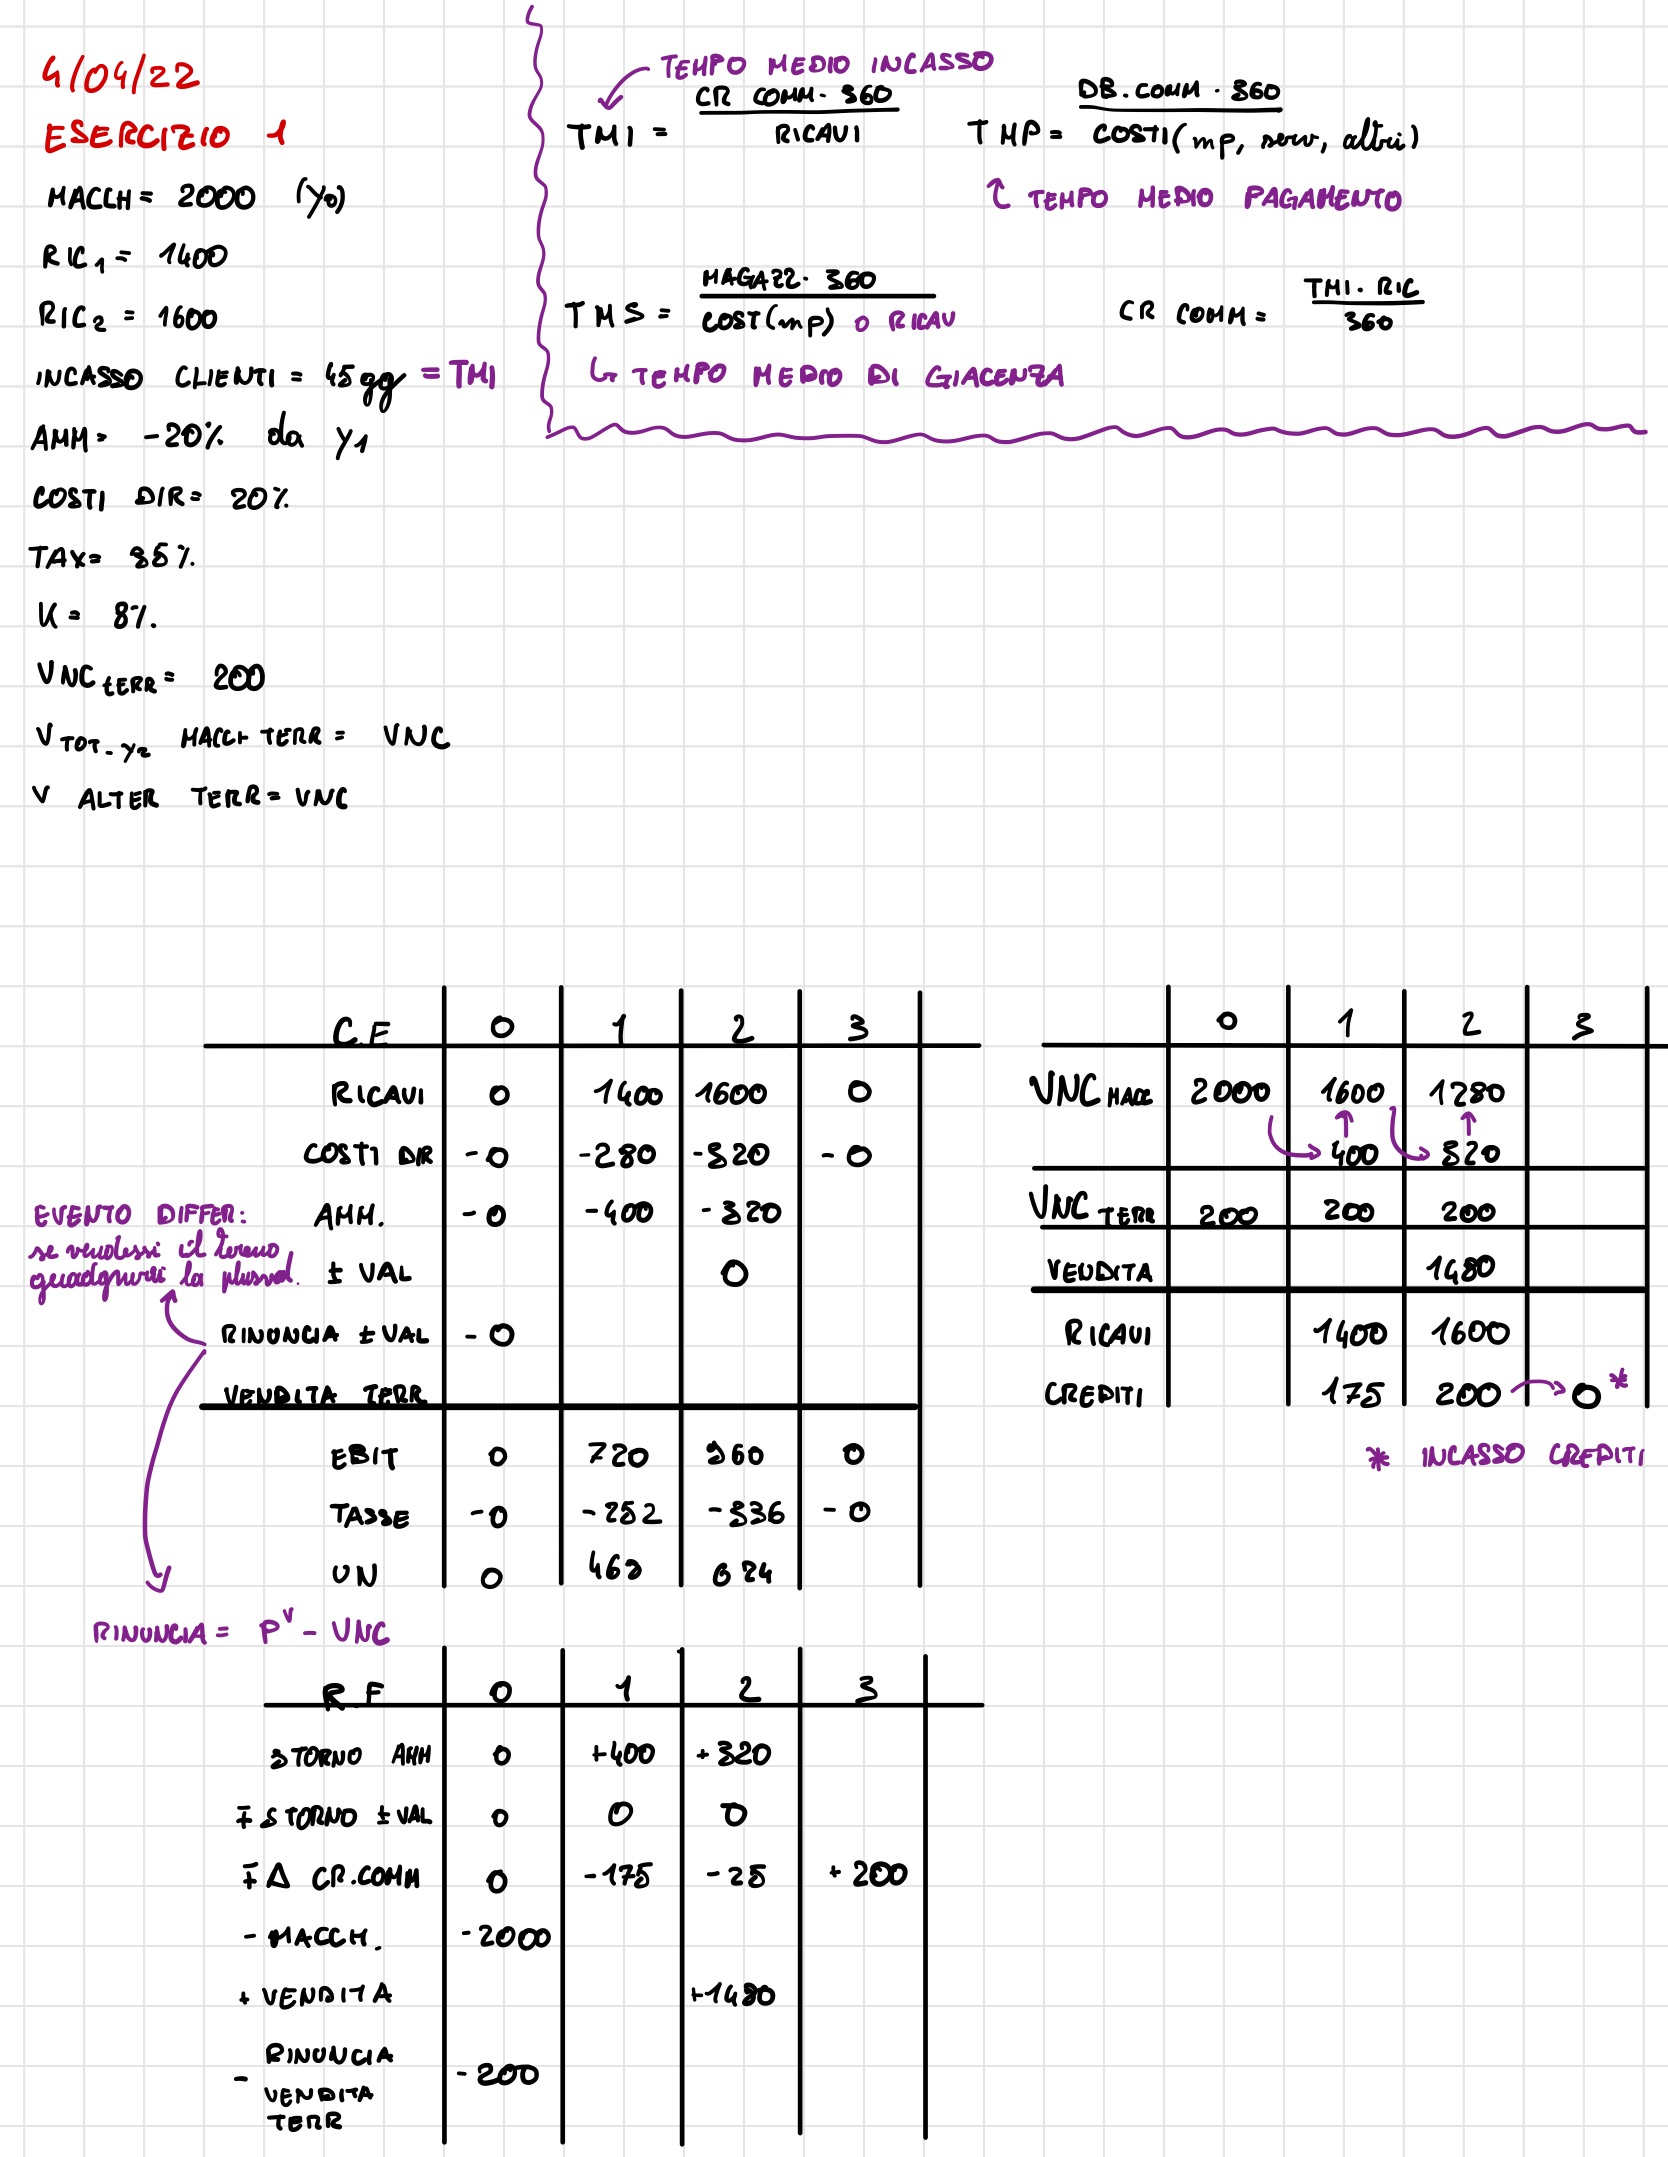 4/04/22
ESERCIZIO 1
MACCH = 2000 (y0)
RIC1 = 1400
RIC2 = 1600
INCASSO CLIENTI = 45 gg = TMI
AMM = -20% da y1
COSTI DIR = 20%
TAX = 35%
K = 8%
VNC TERR = 200
V TOT-y2 MACCH TERR = VNC
V ALTER TERR = VNC
TEMPO MEDIO INCASSO
TMI = CR COMM · 360 / RICAVI
TMP = DB. COMM · 360 / COSTI (mp, serv, altri)
TEMPO MEDIO PAGAMENTO
TMS = MAGAZZ · 360 / COST (mp) O RICAV
CR COMM = TMI · RIC / 360
TEMPO MEDIO DI GIACENZA
C.E 0 1 2 3
RICAVI 0 1400 1600 0
COSTI DIR -0 -280 -320 -0
AMM. -0 -400 -320
± VAL 0
RINUNCIA ± VAL -0
VENDITA TERR
EBIT 0 720 960 0
TASSE -0 -252 -336 -0
UN 0 468 624
EVENTO DIFFER:
se vendessi il terreno
guadagnerei la plusval.
RINUNCIA = P^V - VNC
0 1 2 3
VNC MACC 2000 1600 1280
400 320
VNC TERR 200 200 200
VENDITA 1480
RICAVI 1400 1600
CREDITI 175 200 0 *
* INCASSO CREDITI
R.F 0 1 2 3
STORNO AMM 0 +400 +320
∓ STORNO ± VAL 0 0 0
∓ Δ CR.COMM 0 -175 -25 +200
- MACCH. -2000
+ VENDITA +1480
- RINUNCIA -200
VENDITA
TERR